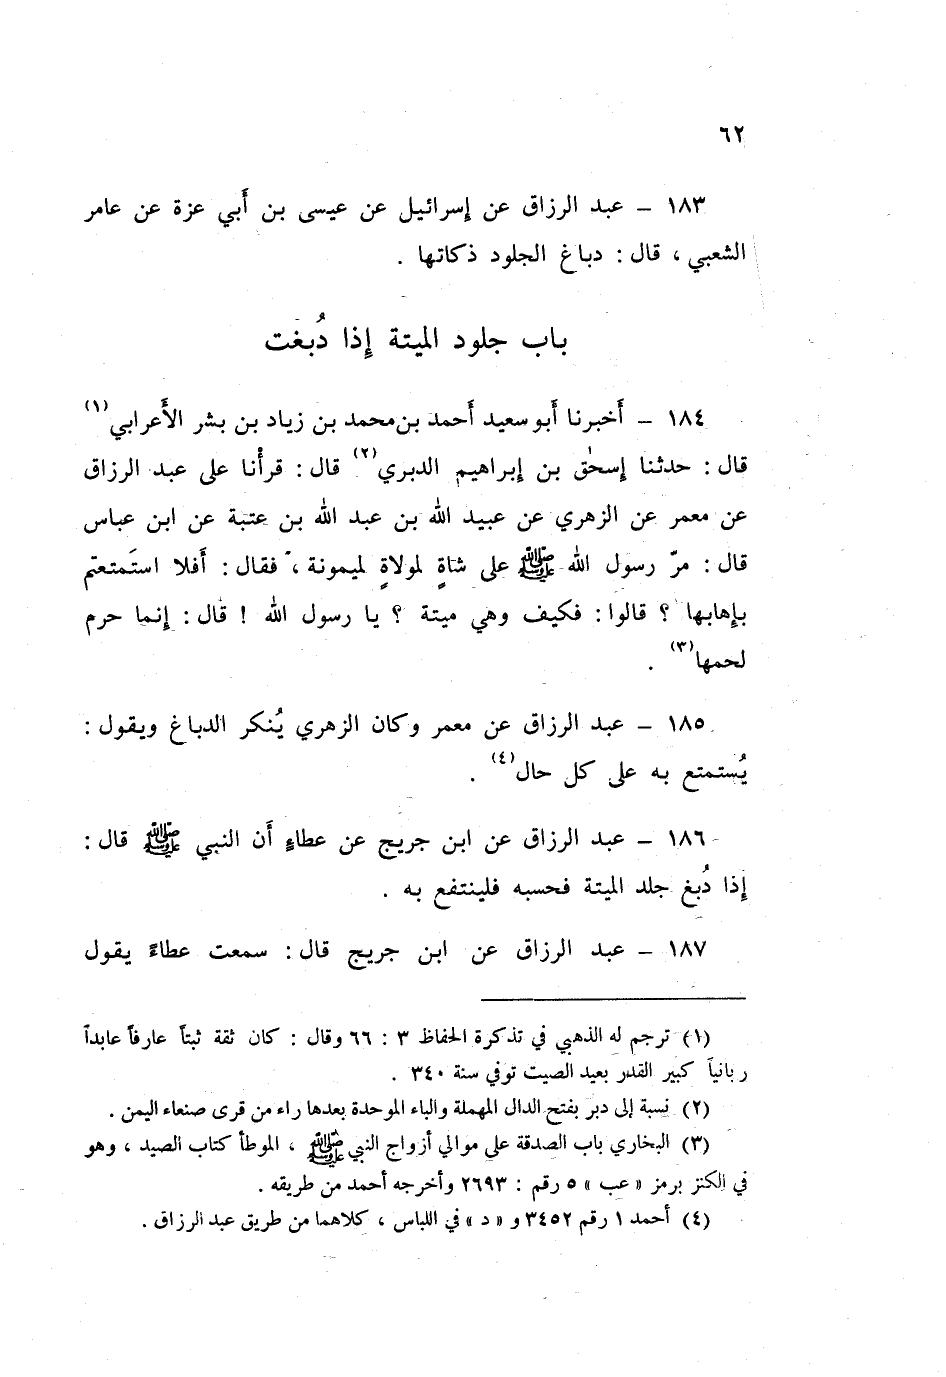 ٦٢
١٨٣ – عبد الرزاق عن إسرائيل عن عيسى بن أبي عزة عن عامر
الشعبي ، قال : دباغ الجلود ذكاتها .
باب جلود الميتة إذا دُبغت
١٨٤ – أخبرنا أبو سعيد أحمد بن محمد بن زياد بن بشر الأعرابي(١)
قال : حدثنا إسحٰق بن إبراهيم الدبري(٢) قال : قرأنا على عبد الرزاق
عن معمر عن الزهري عن عبيد الله بن عبد الله بن عتبة عن ابن عباس
قال : مرّ رسول الله ﷺ على شاةٍ لمولاةٍ لميمونة ، فقال : أفلا استَمتعتم
بإهابها ؟ قالوا : فكيف وهي ميتة ؟ يا رسول الله ! قال : إنما حرم
لحمها(٣) .
١٨٥ – عبد الرزاق عن معمر وكان الزهري يُنكر الدباغ ويقول :
يُستمتع به على كل حال(٤) .
١٨٦ – عبد الرزاق عن ابن جريج عن عطاءٍ أن النبي ﷺ قال :
إذا دُبغ جلد الميتة فحسبه فلينتفع به .
١٨٧ – عبد الرزاق عن ابن جريج قال : سمعت عطاءً يقول
(١) ترجم له الذهبي في تذكرة الحفاظ ٣ : ٦٦ وقال : كان ثقة ثبتاً عارفاً عابداً
ربانياً كبير القدر بعيد الصيت توفي سنة ٣٤٠ .
(٢) نسبة إلى دبر بفتح الدال المهملة والباء الموحدة بعدها راء من قرى صنعاء اليمن .
(٣) البخاري باب الصدقة على موالي أزواج النبي ﷺ ، الموطأ كتاب الصيد ، وهو
في الكنز برمز « عب » ٥ رقم : ٢٦٩٣ وأخرجه أحمد من طريقه .
(٤) أحمد ١ رقم ٣٤٥٢ و « د » في اللباس ، كلاهما من طريق عبد الرزاق .